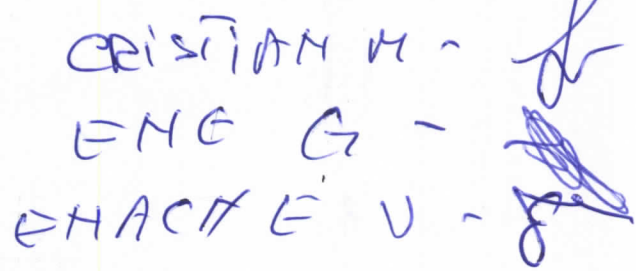 CRISTIAN M -
ENE G -
ENACHE V -